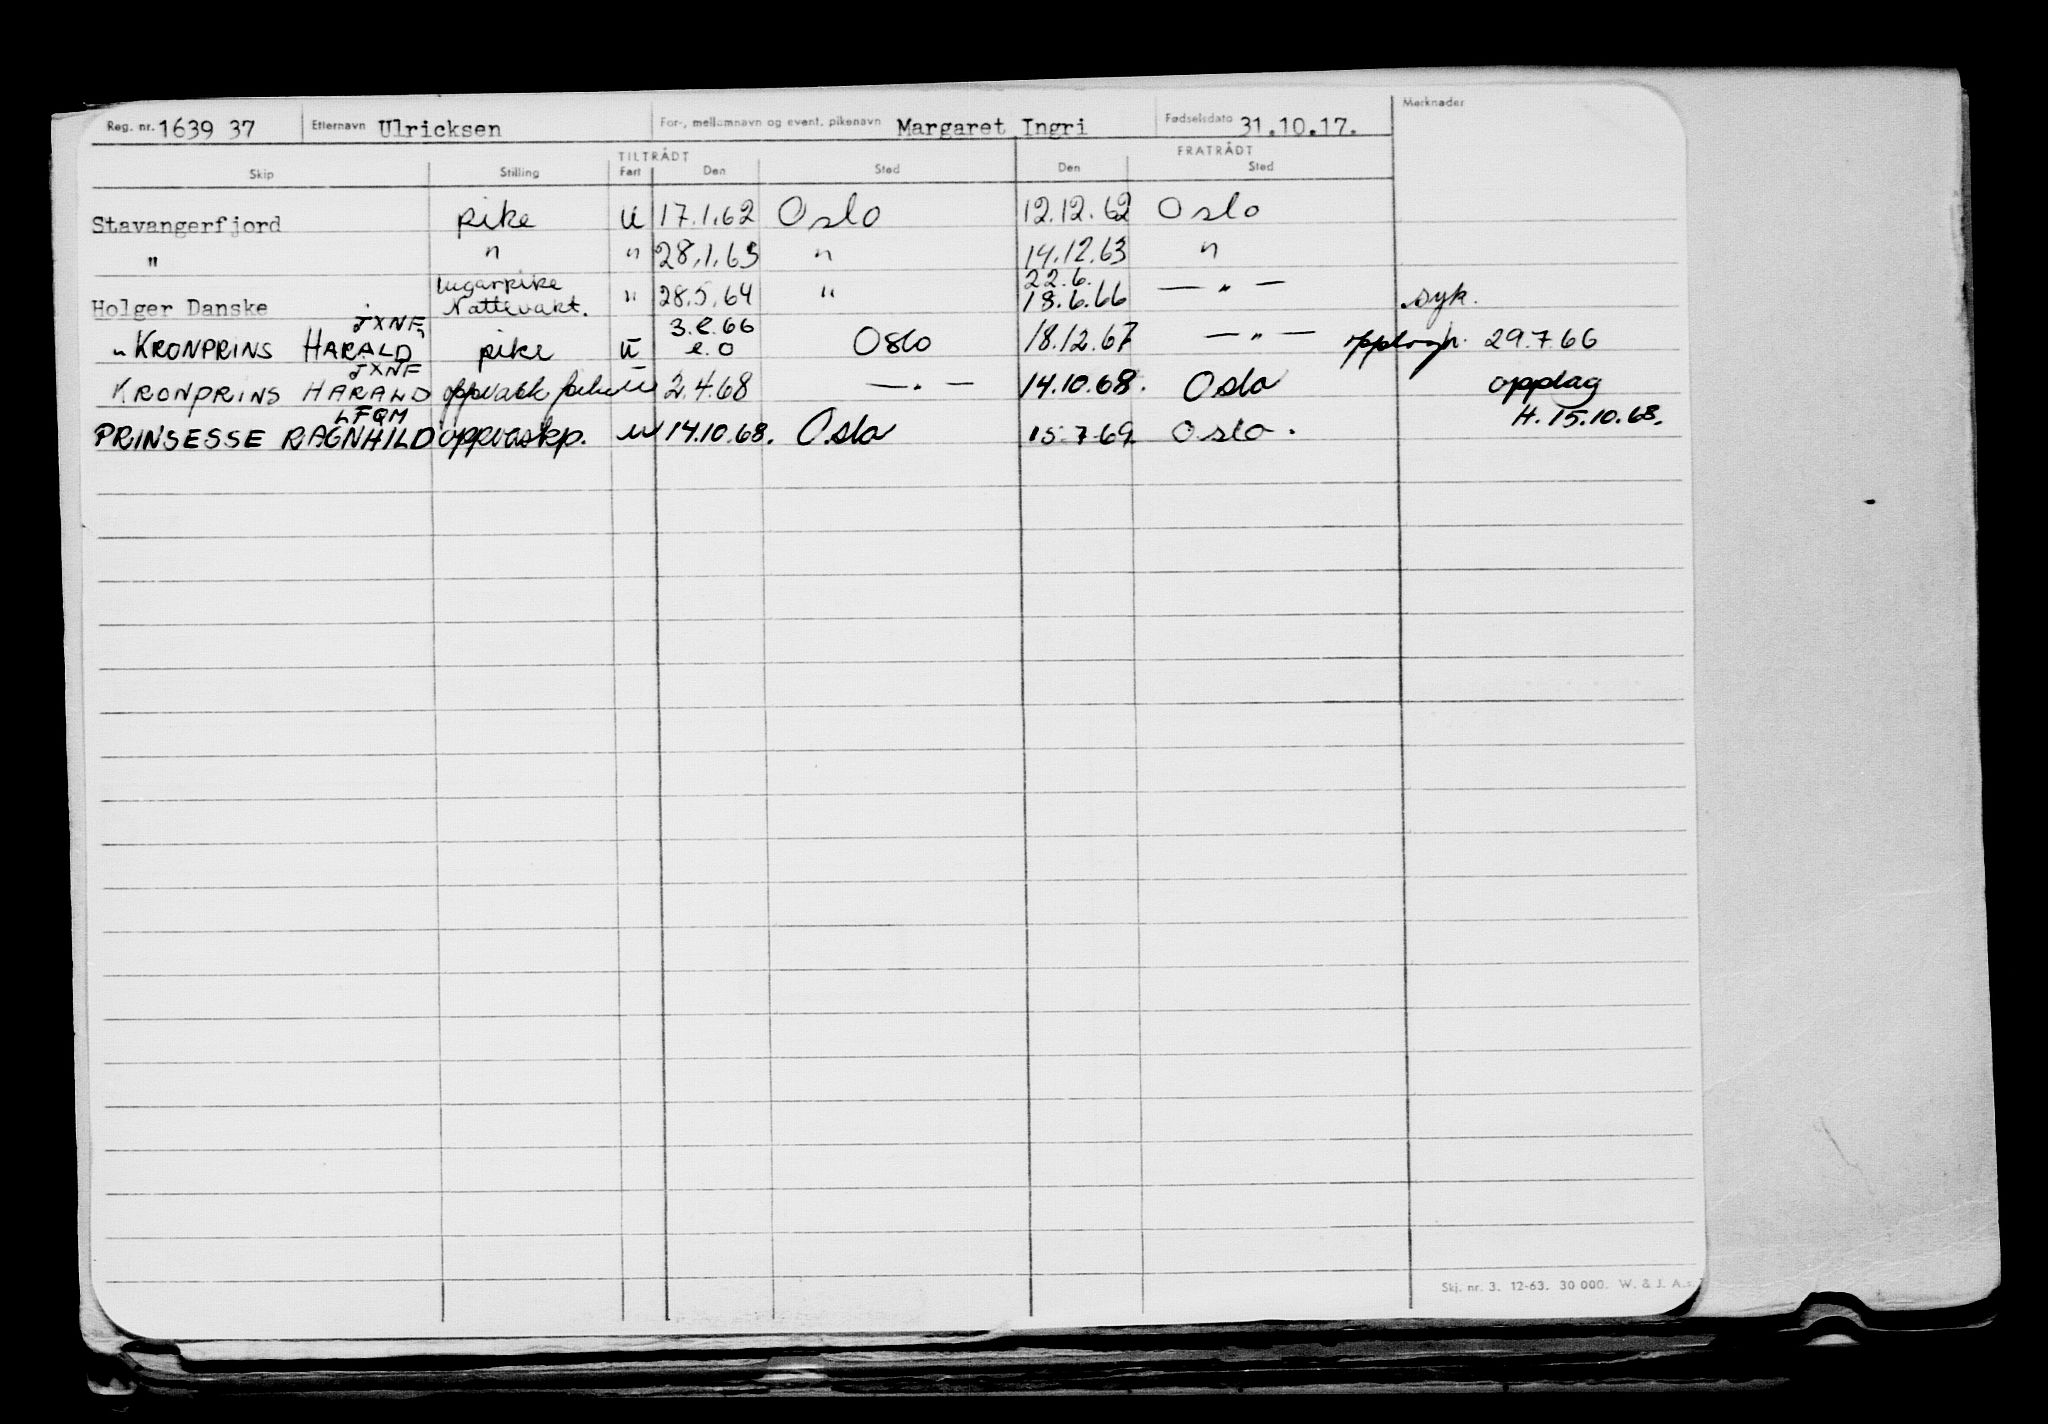 Reg. nr. 1639 37 Etternavn Ulricksen For-, mellomnavn og event. pikenavn Margaret Ingri Fødselsdato 31.10.17. Merknader
TILTRÅDT FRATRÅDT
Skip Stilling Fart Den Sted Den Sted
Stavangerfjord pike U 17.1.62 Oslo 12.12.62 Oslo
" " " 28.1.63 " 14.12.63 "
lugarpike 22.6.
Holger Danske Nattevakt. " 28.5.64 " 18.6.66 — " — syk.
JXNF 3.2.66
" KRONPRINS HARALD pike U e.o Oslo 18.12.67 — " — 29.7.66
JXNF
KRONPRINS HARALD u 2.4.68 — " — 14.10.68. Oslo opplag
LFQM H. 15.10.68.
PRINSESSE RAGNHILD oppvaskp. u 14.10.68. Oslo 15.7.69 Oslo.
Skj. nr. 3. 12-63. 30 000. W. & J. A.s